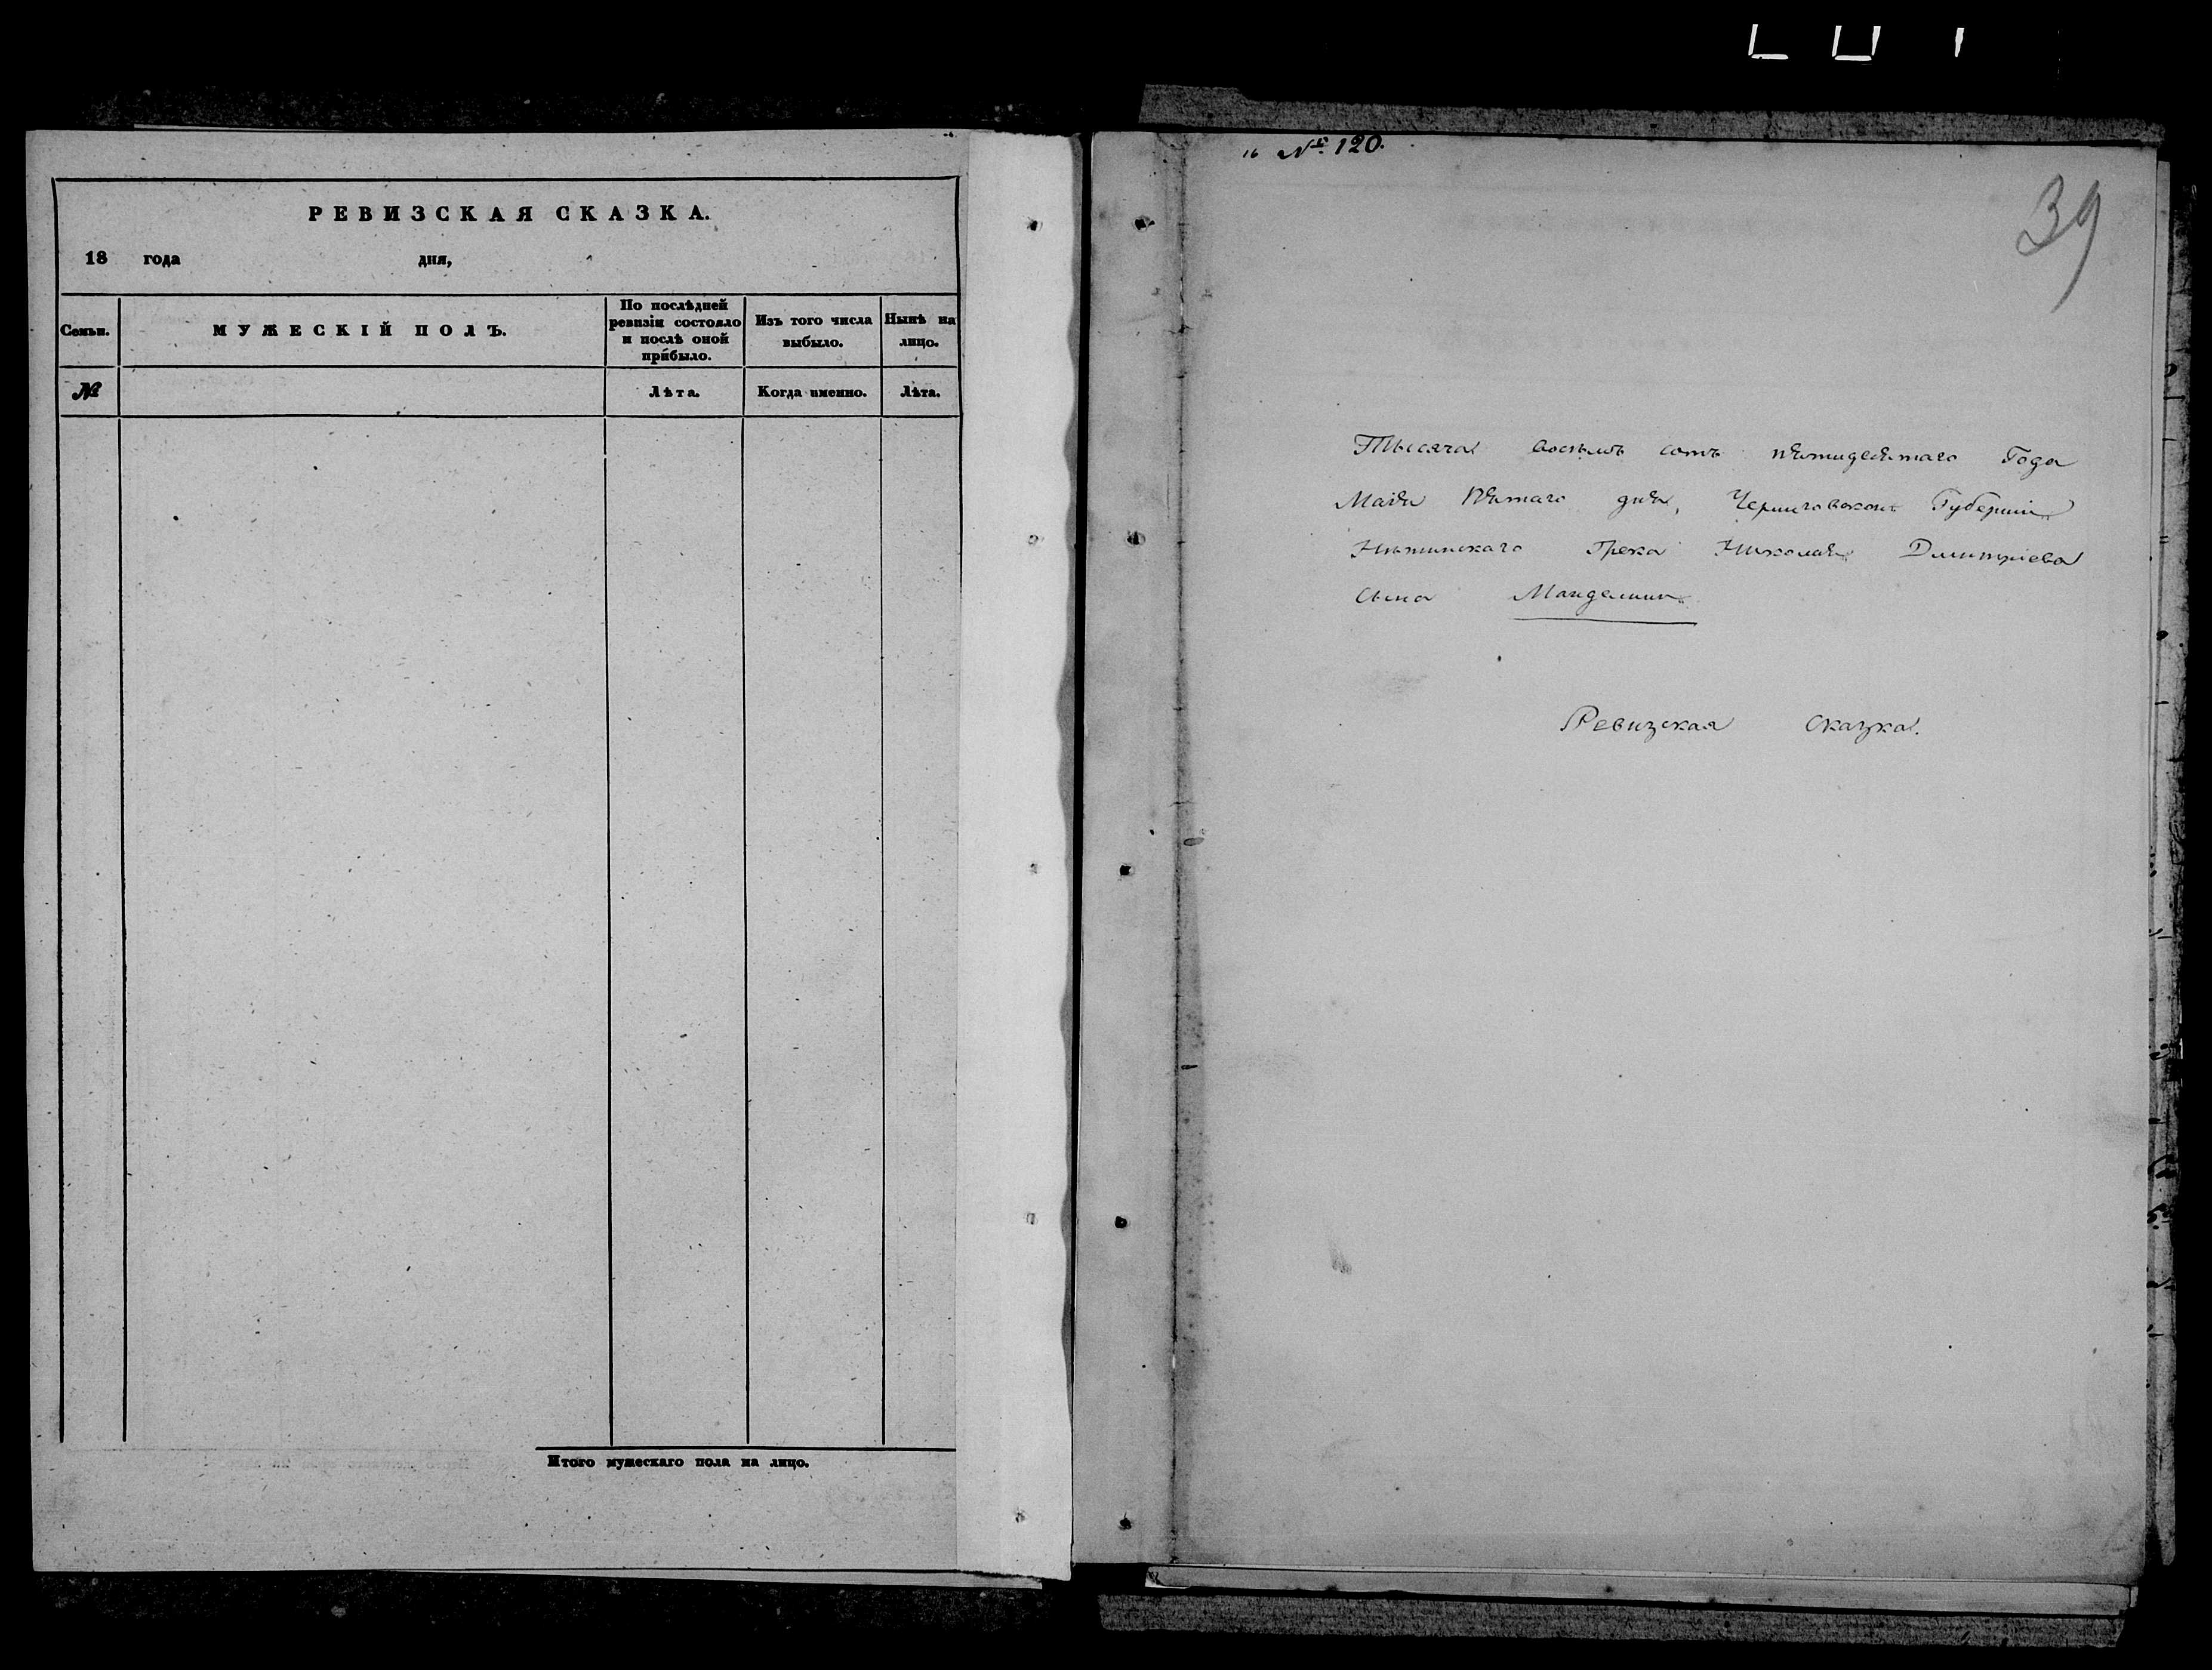 РЕВИЗСКАЯ СКАЗКА.
18 года дня,
Семьи.
МУЖЕСКІЙ ПОЛЪ.
По послѣдней
ревизіи состояло
и послѣ оной
прибыло.
Изъ того числа
выбыло.
Нынѣ на
лицо.
№
Лѣта.
Когда именно.
Лѣта.
Итого мужескаго пола на лицо.
16 №. 120.
39
Тысяча восѣмъ сотъ пятидесятаго Года
Маія Пятаго дня, Черниговской Губерніи
Нѣжинскаго Грека Николая Дмитріева
Сына
Ревизская Сказка.